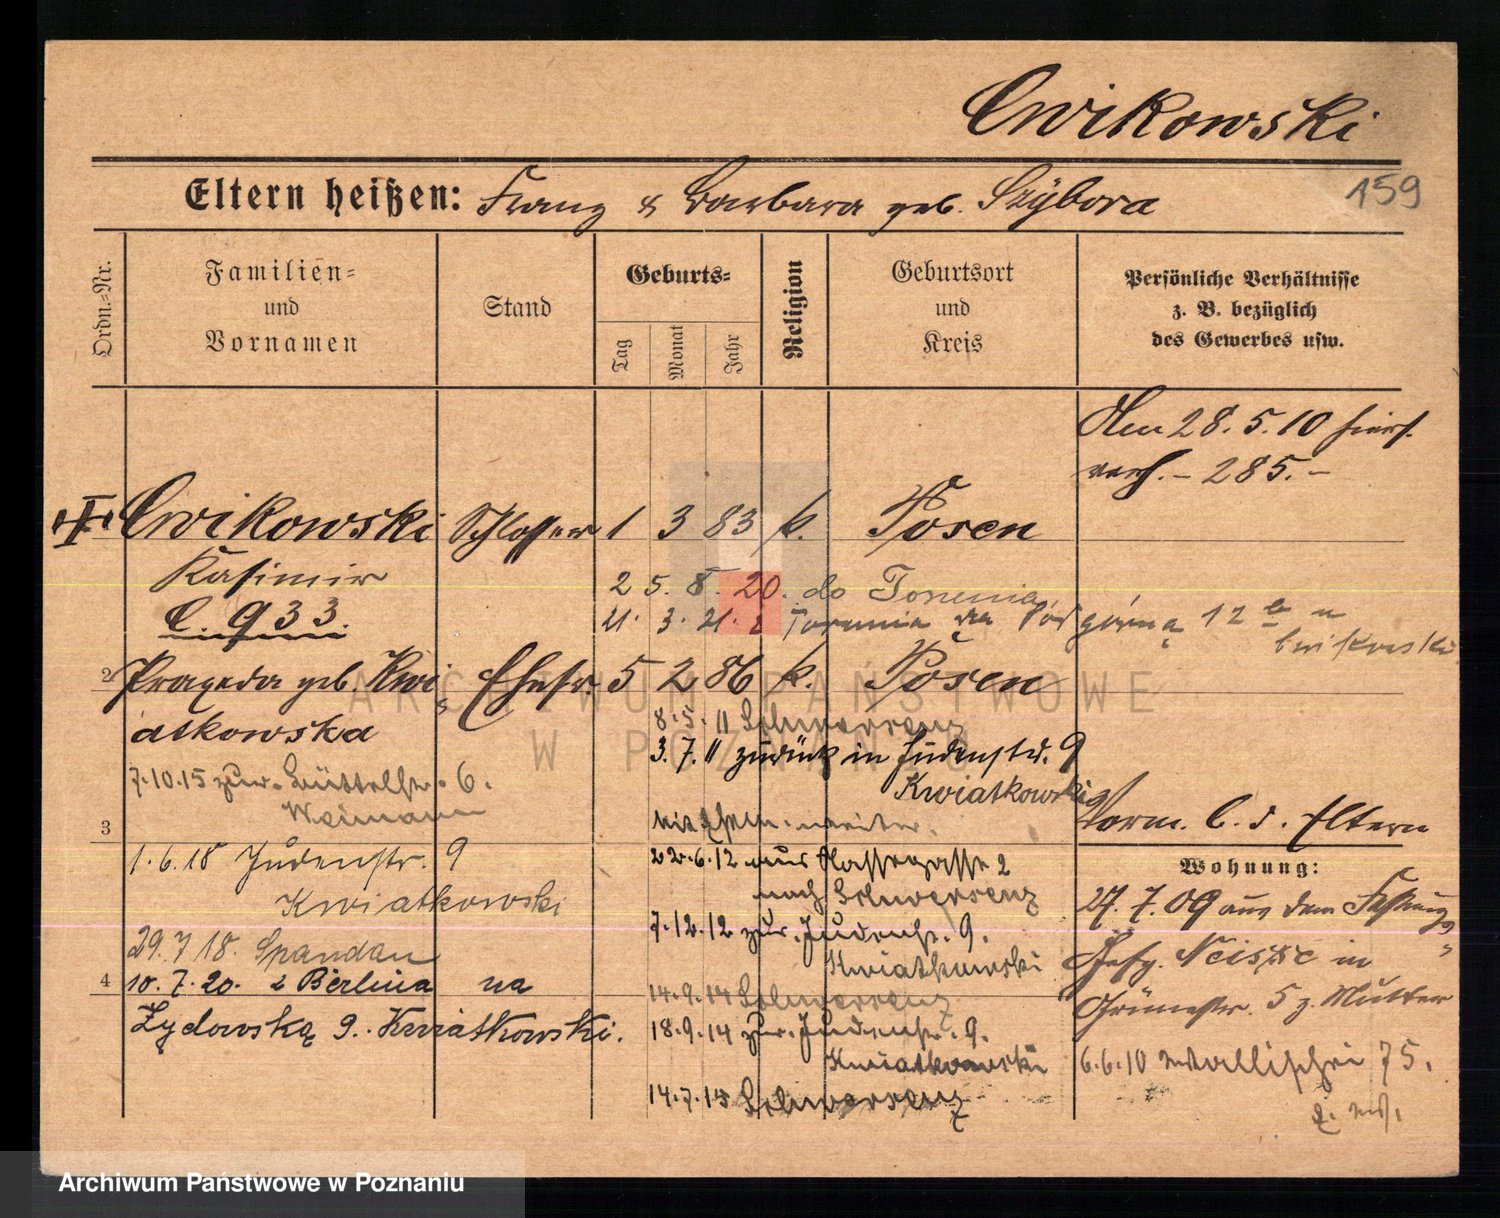 Cwikowski
Eltern heißen: Franz & Barbara geb. Szybora
159
Ordn.=Nr.
Familien=
und
Vornamen
Stand
Geburts=
Tag
Monat
Jahr
Religion
Geburtsort
und
Kreis
Persönliche Verhältnisse
z. B. bezüglich
des Gewerbes usw.
28. 5. 10
verh. – 285. –
I Cwikowski Schlosser 1 3 83 k. Posen
Kasimir
C. 933.
25. 8. 20. do Torunia
21. 3. 21. z Torunia Podgórna 12
2 Praxeda geb. Kwi Ehefr. 5 2 86 k. Posen
atkowska
8. 5. 11 Schwersenz
3. 7. 11 zurück in Judenstr. 9
Kwiatkowski
7. 10. 15 zur. Büttelstr. 6.
Weimann
3
b. d. Eltern
Wohnung:
1. 6. 18 Judenstr. 9
Kwiatkowski
22. 6. 12 aus 2
nach Schwersenz
7. 12. 12 zur. Judenstr. 9.
Kwiatkowski
27. 7. 09 aus dem Festungs
Gefg. Neisse in
5 z. Mutter
29. 7 18. Spandau
4 10. 7. 20. z Berlina na
Żydowską 9. Kwiatkowski.
14. 9. 14 Schwersenz
18. 9. 14 zur. Judenstr. 9.
Kwiatkowski
14. 7. 15 Schwersenz
6. 6. 10 Wallischei 75.
ARCHIWUM PAŃSTWOWE
W POZNANIU
Archiwum Państwowe w Poznaniu